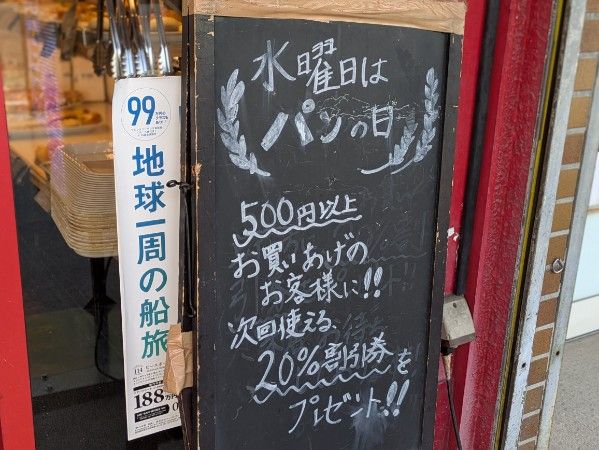 水曜日は
パンの日
500円以上
お買いあげの
お客様に!!
次回使える、
20%割引券を
プレゼント!!
99
地球一周の船旅
114
188万円